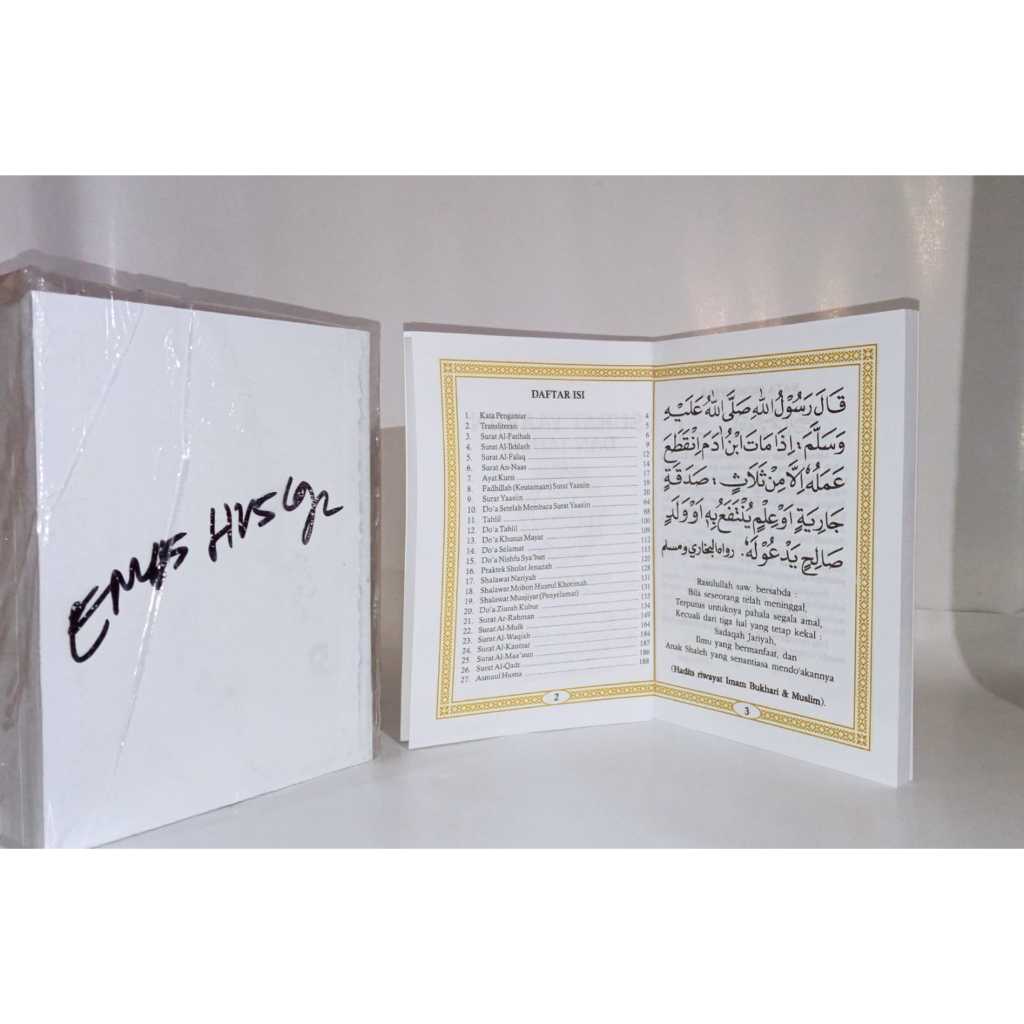 HVS
DAFTAR ISI
1. Kata Pengantar 4
2. Transliterasi 5
3. Surat Al-Fatihah 6
4. Surat Al-Ikhlash 9
5. Surat Al-Falaq 12
6. Surat An-Naas 14
7. Ayat Kursi 17
8. Fadhillah (Keutamaan) Surat Yaasin 19
9. Surat Yaasin
10. Do'a Setelah Membaca Surat Yaasin 64
11. Tahlil 68
12. Do'a Tahlil 100
13. Do'a Khusus Mayat 109
14. Do'a Selamat 112
15. Do'a Nishfu Sya'ban 113
16. Praktek Sholat Jenazah 120
17. Shalawat Nariyah 128
18. Shalawat Mohon Husnul Khotimah 131
19. Shalawat Munjiyat (Penyelamat) 131
20. Do'a Ziarah Kubur 132
21. Surat Ar-Rahman 134
22. Surat Al-Mulk 149
23. Surat Al-Waqiah 164
24. Surat Al-Kautsar 184
25. Surat Al-Maa'uun 185
26. Surat Al-Qadr 186
27. Asmaul Husna 188
2
قَالَ رَسُوْلُ اللهِ صَلَّى اللهُ عَلَيْهِ
وَسَلَّمَ: اِذَا مَاتَ ابْنُ اٰدَمَ اِنْقَطَعَ
عَمَلُهُ اِلَّا مِنْ ثَلَاثٍ: صَدَقَةٍ
جَارِيَةٍ اَوْ عِلْمٍ يُنْتَفَعُ بِهِ اَوْ وَلَدٍ
صَالِحٍ يَدْعُوْ لَهُ. رواه البخاري ومسلم
Rasulullah saw. bersabda :
Bila seseorang telah meninggal,
Terputus untuknya pahala segala amal,
Kecuali dari tiga hal yang tetap kekal :
Sadaqah Jariyah,
Ilmu yang bermanfaat, dan
Anak Shaleh yang senantiasa mendo'akannya
(Hadits riwayat Imam Bukhari & Muslim).
3